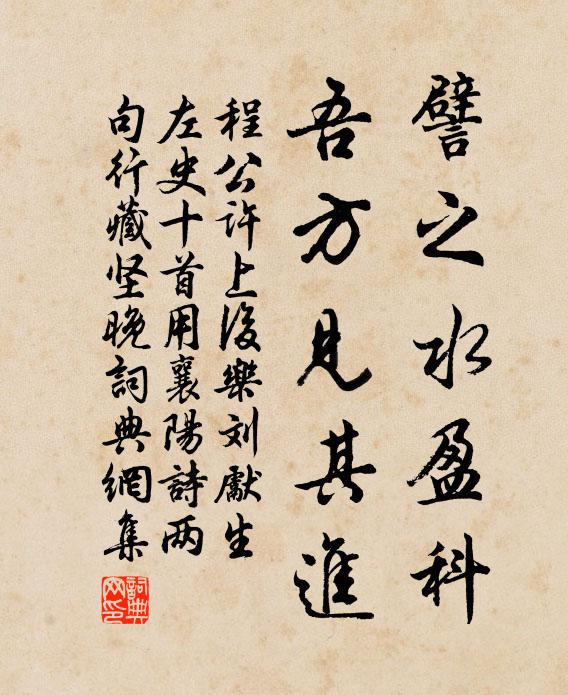 譬之水盈科
吾方見其進
程公許上後樂刘獻生
左史十首用襄陽詩两
句行藏坚晚詞典網集
詞典網印